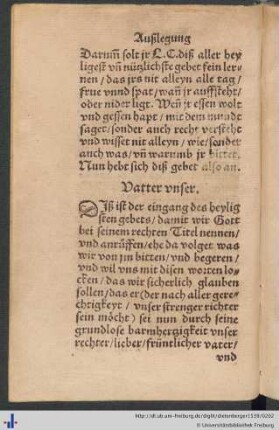 Außlegung
Darumm̃ solt jr L.C. diß aller hey
ligest vñ nützlichste gebet fein ler-
nen / das jrs nit alleyn alle tag /
frue vnnd spat / wañ jr auffsteht /
oder nider ligt. Weñ jr essen wolt
vnd gessen hapt / mit dem mundt
saget / sonder auch recht versteht
vnd wisset nit alleyn / wie / sonder
auch was / vñ warumb jr bittet.
Nun hebt sich diß gebet also an.
Vatter vnser.
Diß ist der eingang des heylig
sten gebets / damit wir Gott
bei seinem rechten Titel nennen /
vnd anrůffen / ehe da volget was
wir von jm bitten / vnd begeren /
vnd wil vns mit disen worten lo-
cken / das wir sicherlich glauben
sollen / das er (der nach aller gere-
chtigkeyt / vnser strenger richter
sein möcht) sei nun durch seine
grundlose barmhertzigkeit vnser
rechter / lieber / früntlicher vater /
vnd
http://dl.ub.uni-freiburg.de/diglit/dietenberger1539/0202
© Universitätsbibliothek Freiburg